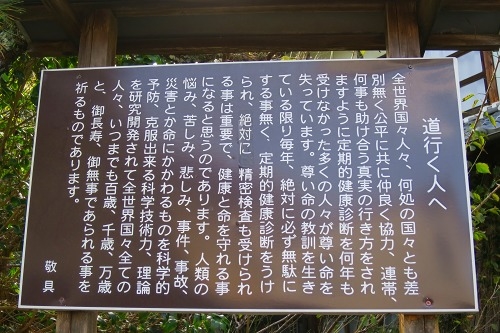 道行く人へ
全世界国々人々、何処の国々とも差
別無く公平に共に仲良く協力、連帯、
何事も助け合う真実の行き方をされ
ますように定期的健康診断を何年も
受けなかった多くの人々が尊い命を
失っています。尊い命の教訓を生き
ている限り毎年、絶対に必ず無駄に
する事無く、定期的健康診断をうけ
られ、絶対に 精密検査も受けられ
る事は重要で、健康と命を守れる事
になると思うのであります。人類の
悩み、苦しみ、悲しみ、事件、事故、
災害とか命にかかわるものを科学的
予防、克服出来る科学技術力、理論
を研究開発されて全世界国々全ての
人々、いつまでも百歳、千歳、万歳
と、御長寿、御無事であられる事を
祈るものであります。
敬具